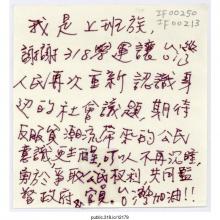 IF00250
IF00213
我是上班族，
謝謝318學運讓台灣
人民再次重新認識身
邊的社會議題 期待
反服貿潮流帶來的公民
意識更生醒，可以不再沈睡，
勇於爭取公民權利 共同監
督政府、官員。台灣加油!!
public.318.io/18179